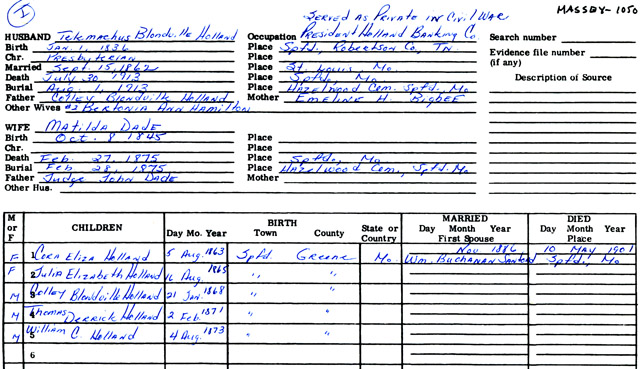 I
SERVED AS PRIVATE IN CIVIL WAR
MASSEY-1050
HUSBAND Telemachus Blondville Holland Occupation President Holland Banking Co. Search number
Birth Jan. 1, 1836 Place Spfd, Robertson Co, TN Evidence file number
Chr. Presbyterian Place (if any)
Married Sept. 15, 1862 Place St. Louis Mo Description of Source
Death July 30 1913 Place Spfd, Mo
Burial Aug. 1, 1913 Place Hazelwood Cem. Spfd. Mo
Father Colley Blondville Holland Mother Emeline H. Bigbee
Other Wives #2 Bertonia Ann Hamilton
WIFE Matilda Dade
Birth Oct. 8 1845 Place
Chr. Place
Death Feb. 27, 1875 Place Spfd, Mo
Burial Feb 28, 1875 Place Hazelwood Cem, Spfd. Mo
Father Judge John Dade Mother
Other Hus.
M or F CHILDREN Day Mo. Year BIRTH Town County State or Country MARRIED Day Month Year First Spouse DIED Day Month Year Place
F 1 Cora Eliza Holland 5 Aug. 1863 Spfd Greene Mo. Nov 1886 Wm. Buchanan Sanford 10 May 1901 Spfd, Mo
F 2 Julia Elizabeth Holland 16 Aug. 1865 " "
M 3 Colley Blondville Holland 21 Jan. 1868 " "
M 4 Thomas Derrick Holland 2 Feb. 1871 " "
M 5 William C. Holland 4 Aug. 1873 " "
6